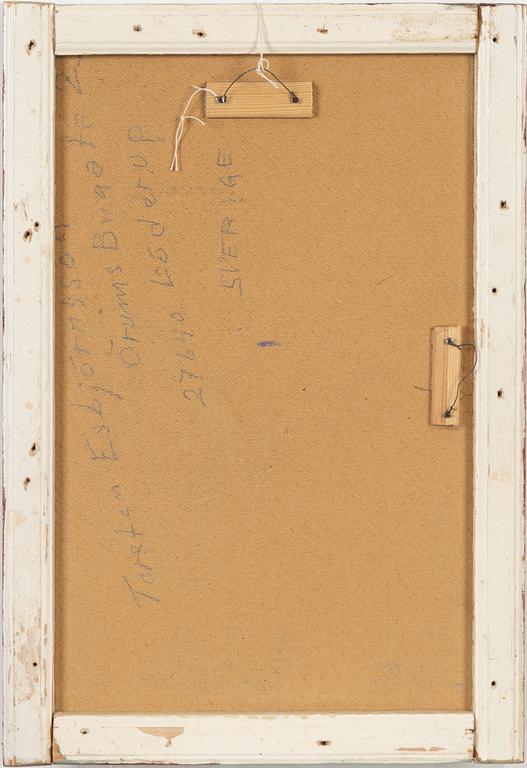 Torsten Esbjörnsson
Örums Byaväg 2
27640 Löderup
SVERIGE